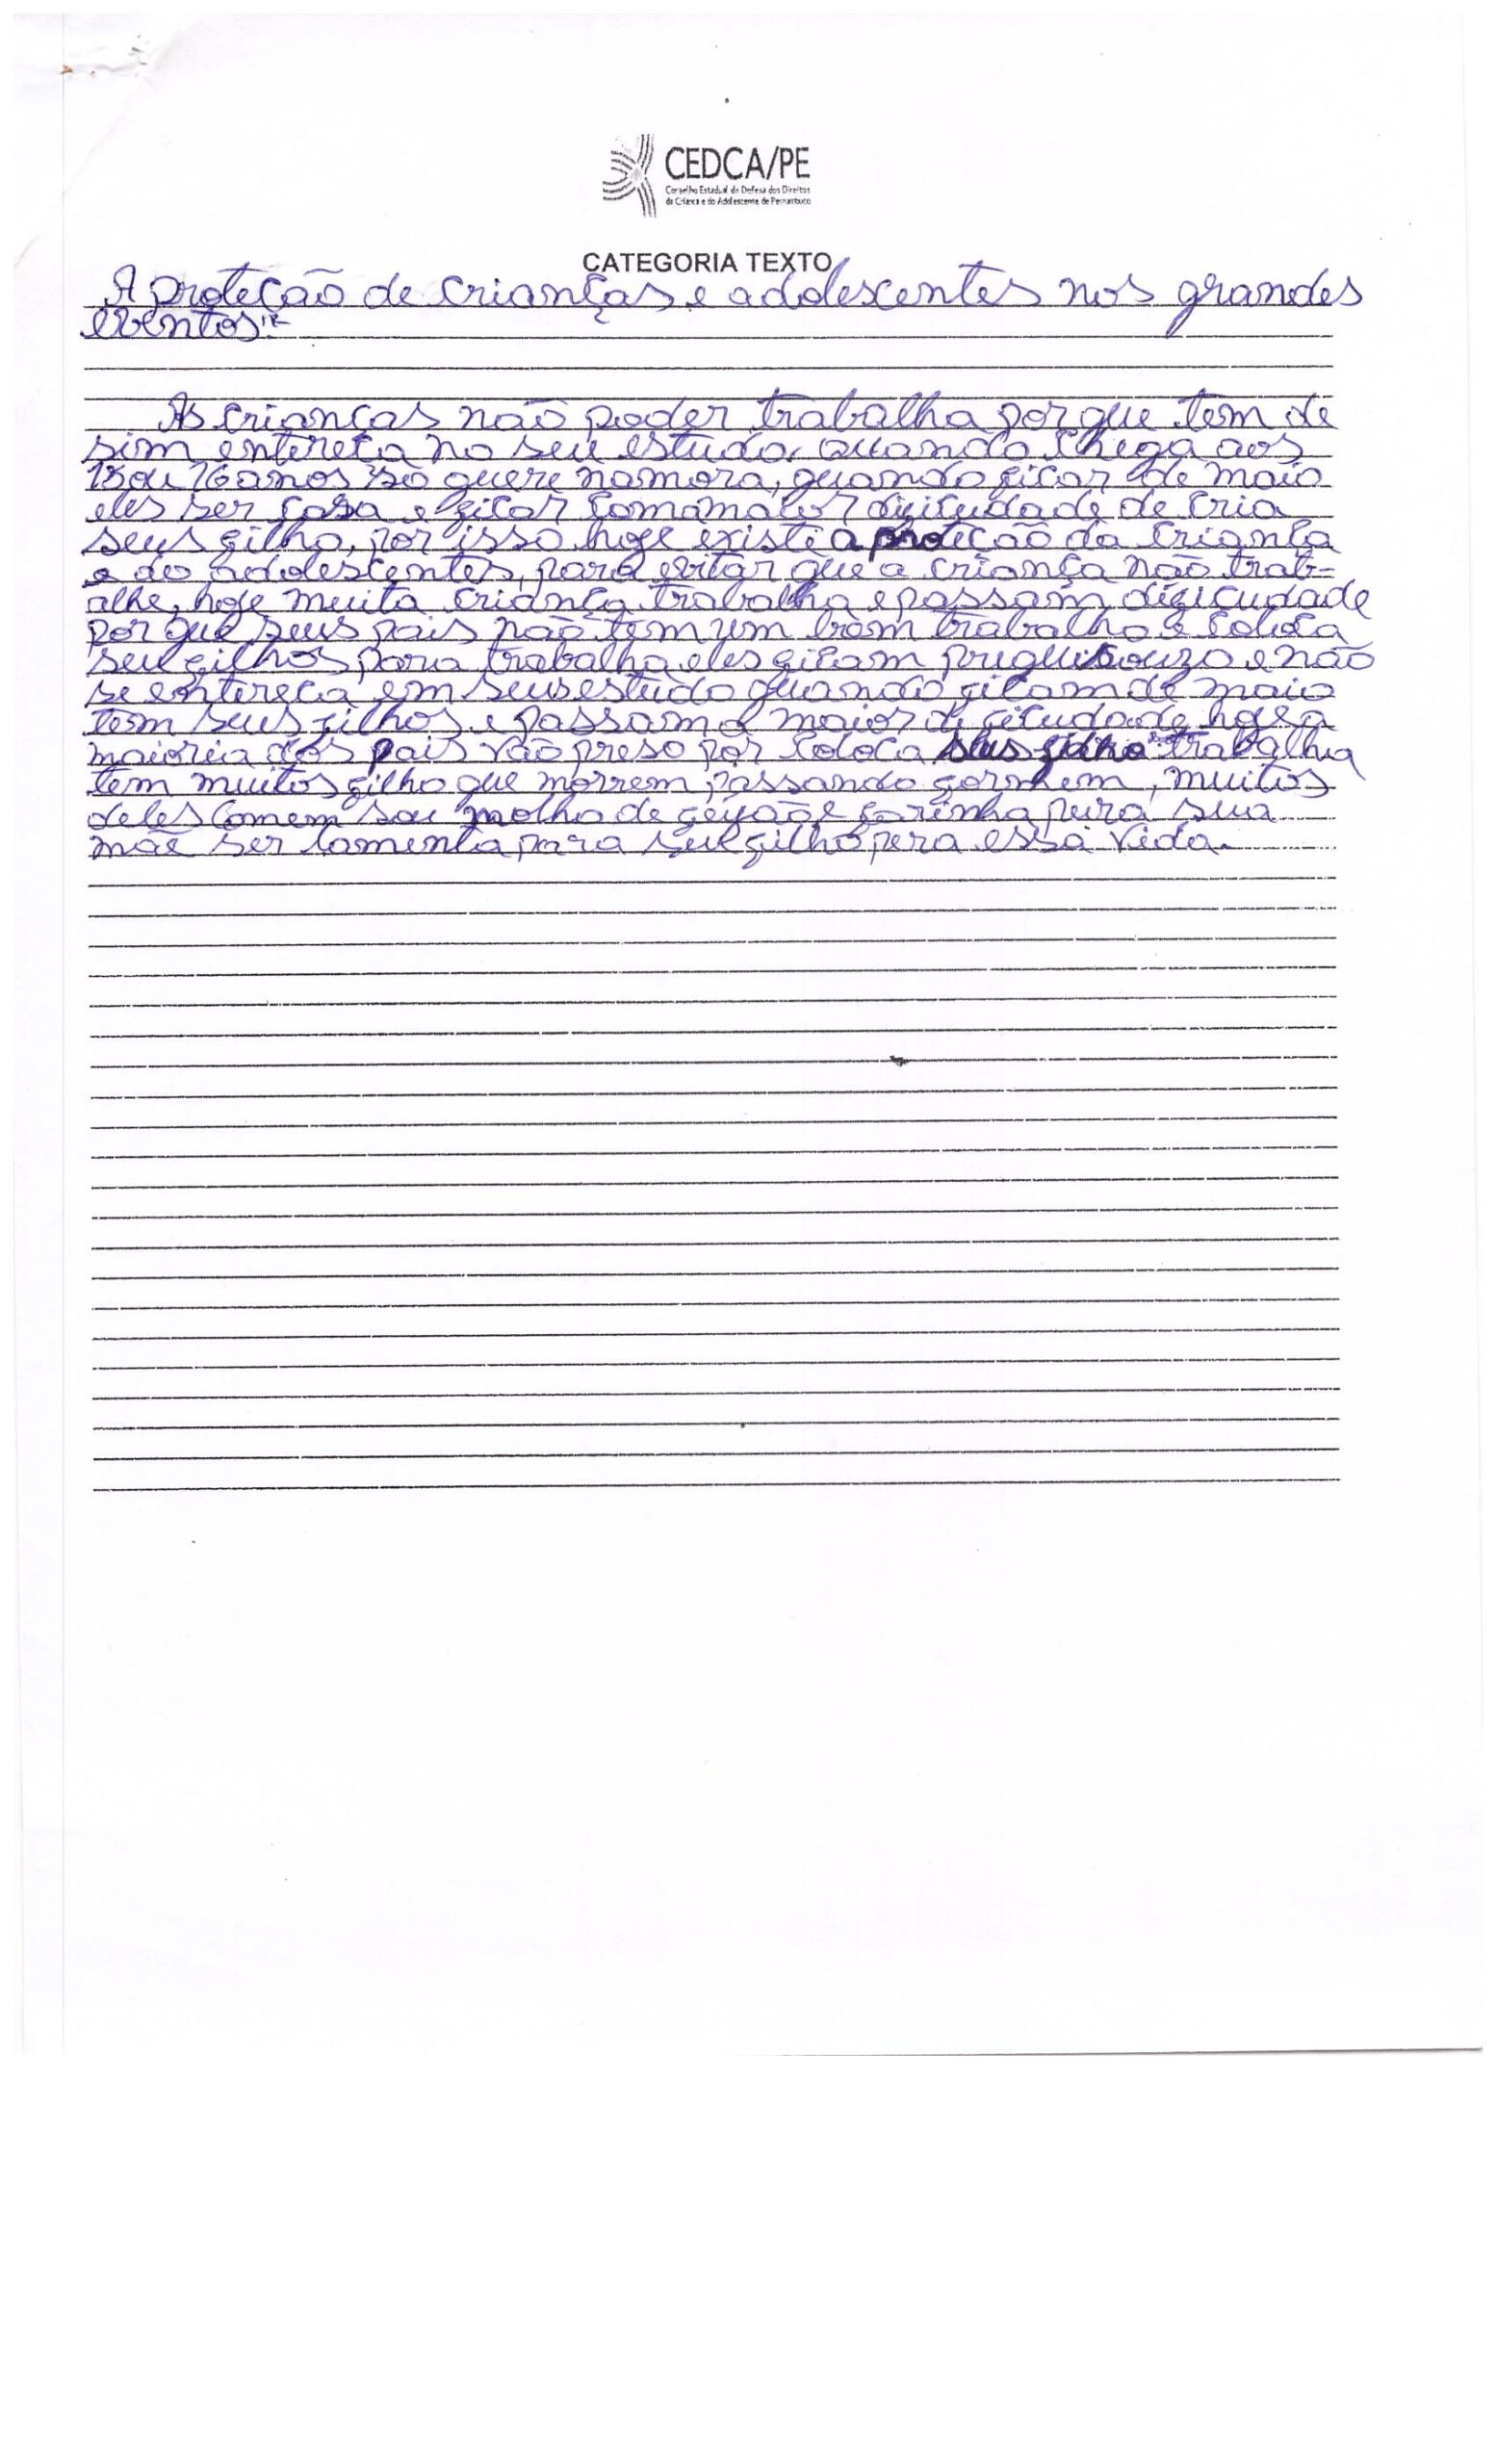 CEDCA/PE
Conselho Estadual de Defesa dos Direitos
da Criança e do Adolescente de Pernambuco
CATEGORIA TEXTO
A proteção de crianças e adolescentes nos grandes
eventos"
As crianças não poder trabalha porque tem de
sim entereça no seu estudo, quando chega aos
15 ou 16 anos só quere namora, quando ficar de maio
eles ser casa e ficar com a maior dificudade de cria
seus filho, por isso hoje existi a proteção da criança
e do adolescentes, para evitar que a criança não trab-
alhe, hoje muita criança trabalha e passam dificudade
por que seus pais não tem um bom trabalho e coloca
seu filhos para trabalha eles ficam e não
se entereça em seus estudo quando ficam de maio
tem seus filhos e passam a maior dificudade hoje a
maioria dos pais vão preso por coloca seus filho trabalha
tem muitos filho que morrem passando formem, muitos
deles comem sou molho de feijão e farinha pura sua
mãe ser lamenta para seu filho pera essa vida.